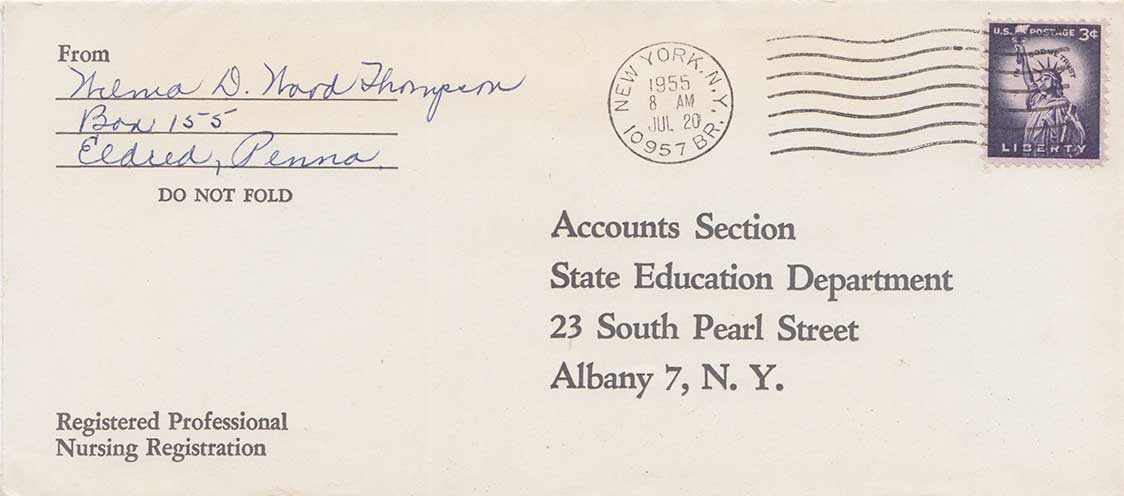 From
Wilma D. Ward Thompson
Box 155
Eldred, Penna.
DO NOT FOLD
NEW YORK, N.Y.
1955
8 AM
JUL 20
10957 BR.
U.S. POSTAGE 3¢
IN GOD WE TRUST
LIBERTY
Accounts Section
State Education Department
23 South Pearl Street
Albany 7, N. Y.
Registered Professional
Nursing Registration